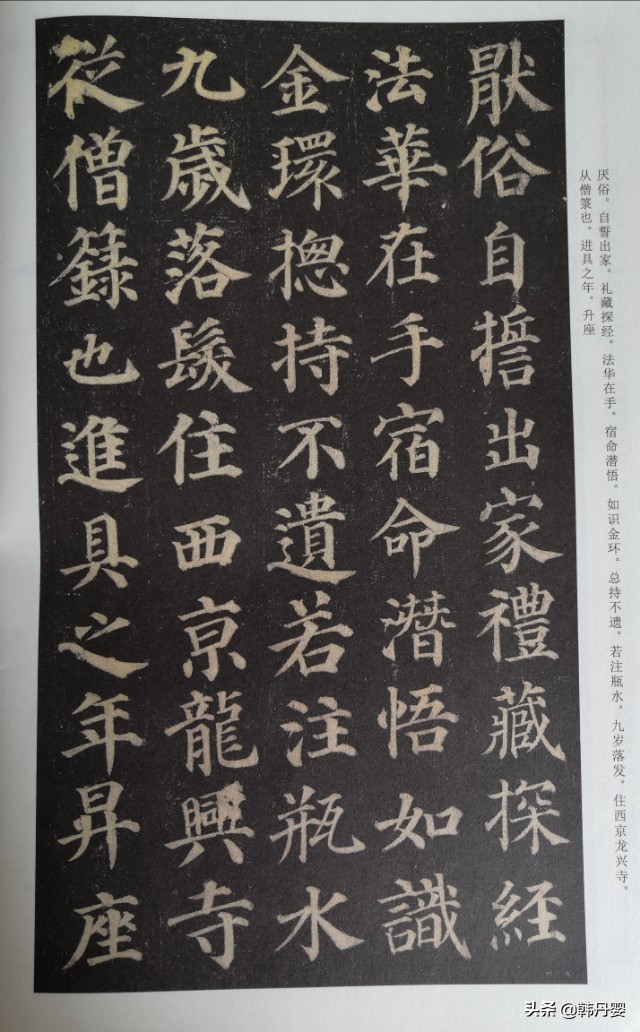 厭俗自誓出家禮藏探經
法華在手宿命潛悟如識
金環揔持不遺若注瓶水
九歲落髮住西京龍興寺
從僧籙也進具之年昇座
厌俗。自誓出家。礼藏探经。法华在手。宿命潜悟。如识金环。总持不遗。若注瓶水。九岁落发。住西京龙兴寺。
从僧箓也。进具之年。升座
头条@韩丹婴